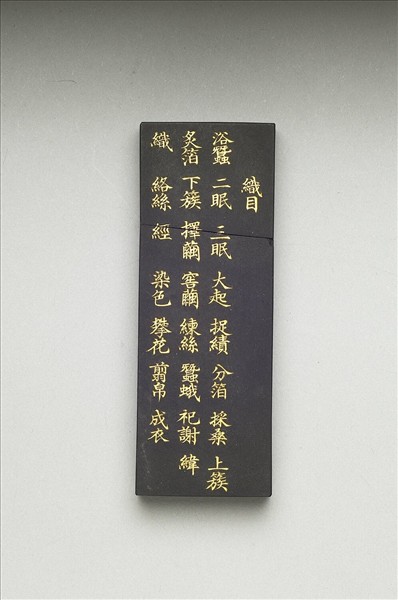 織目
浴蠶 二眠 三眠 大起 捉績 分箔 採桑 上簇
炙箔 下簇 擇繭 窖繭 練絲 蠶蛾 祀謝 緯
織 絡絲 經 染色 攀花 翦帛 成衣